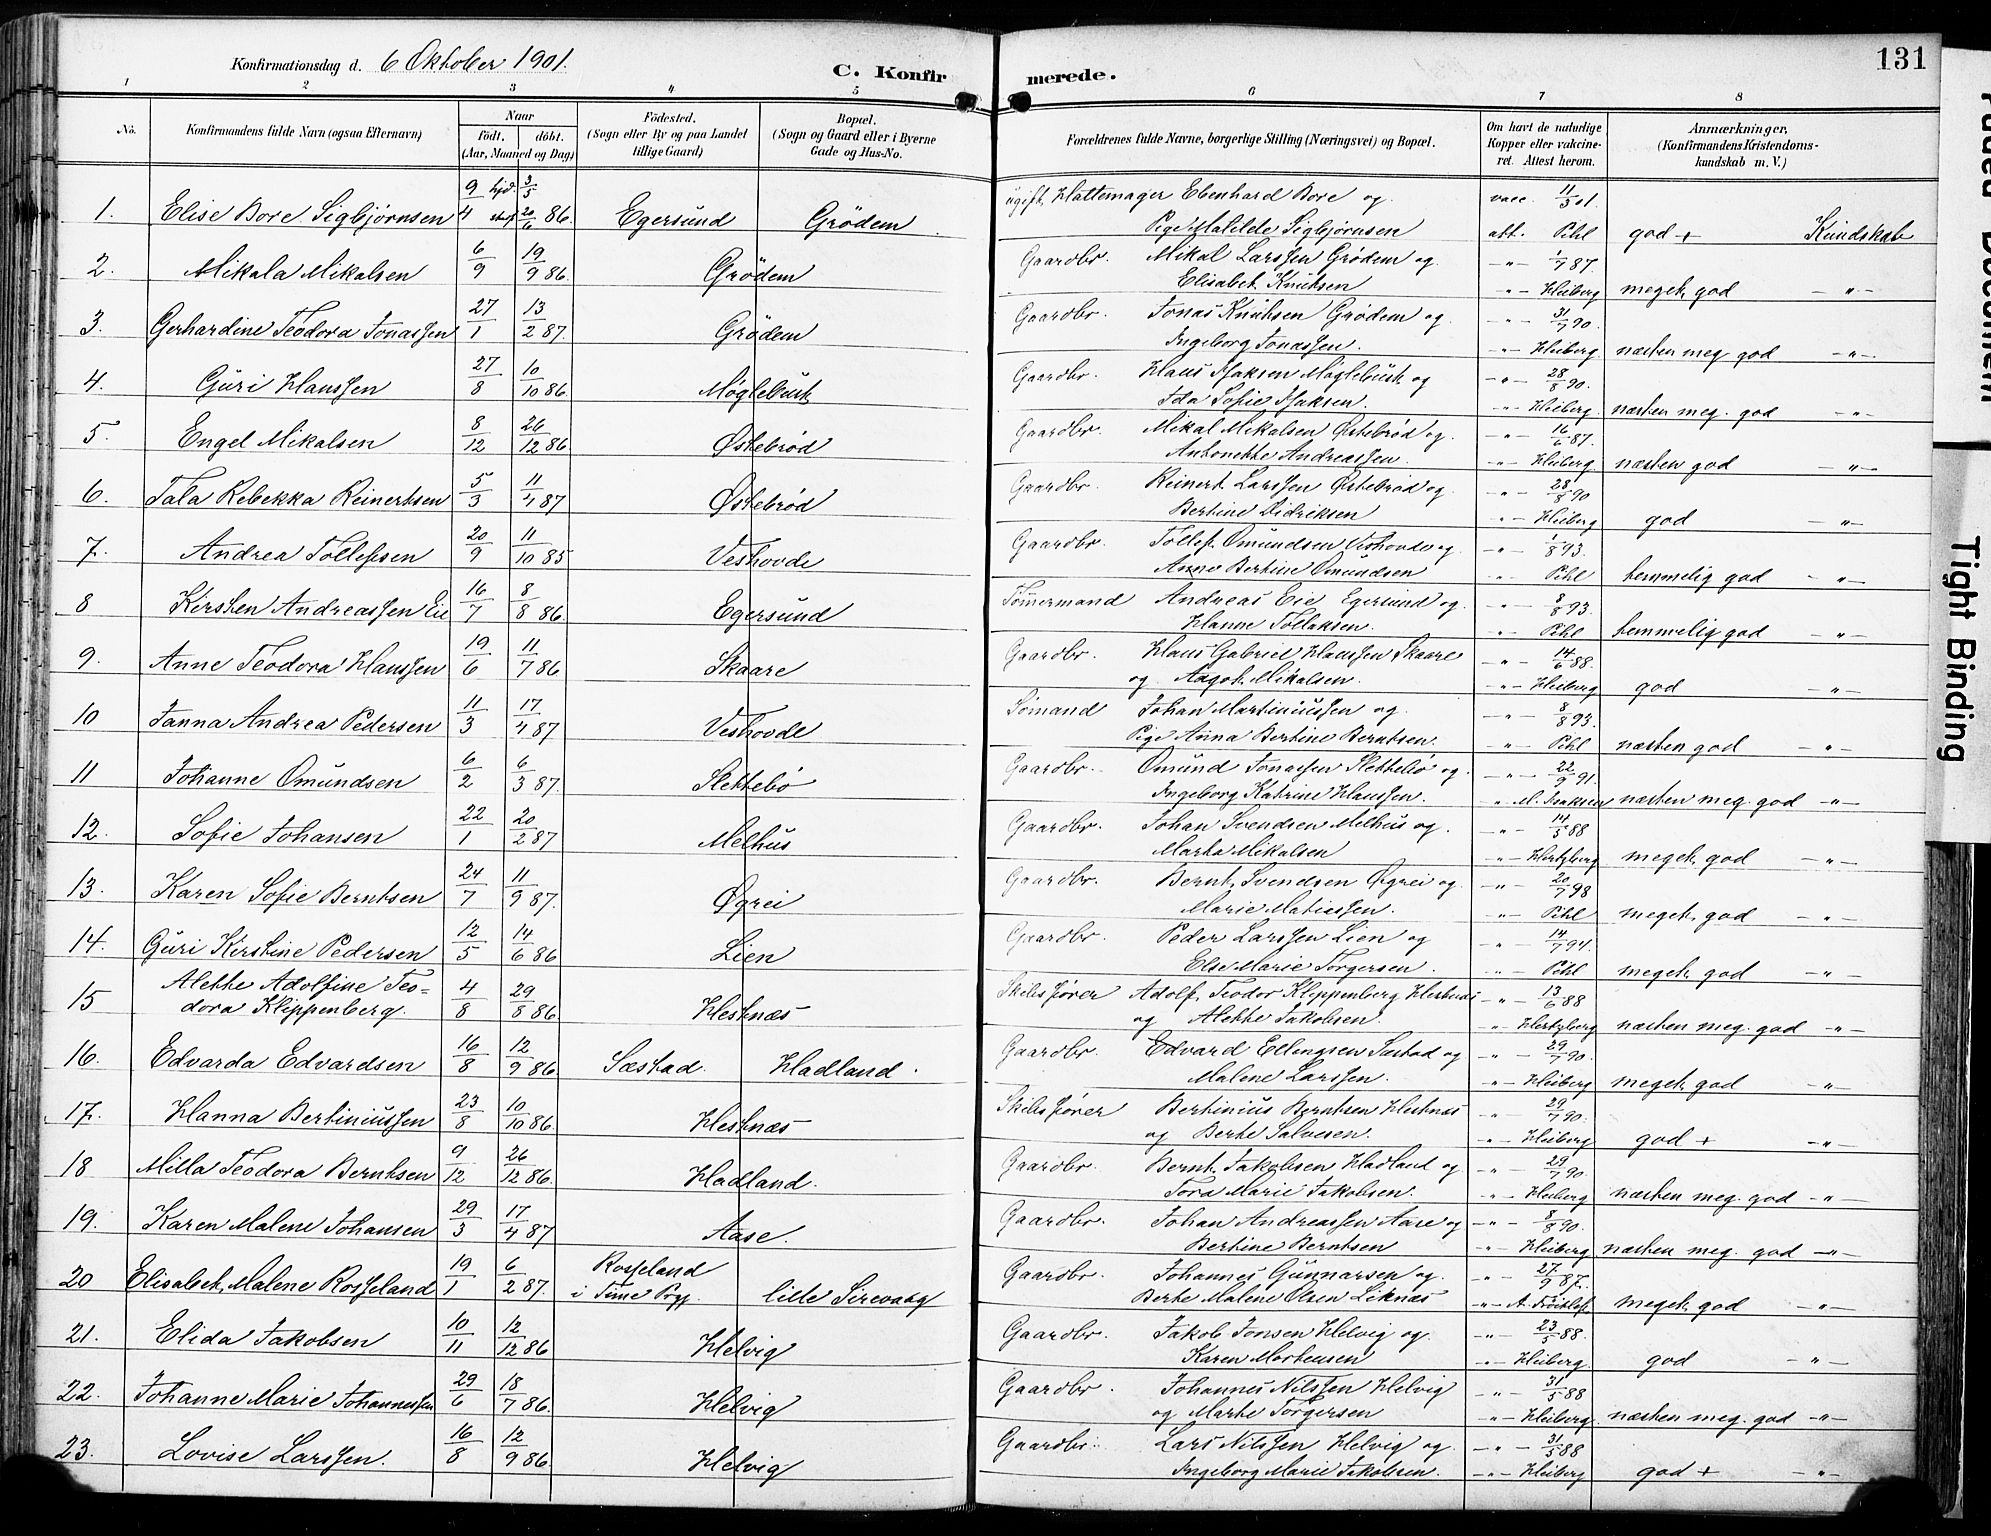 Konfirmationsdag d. 6 Oktober 1901.
C. Konfirmerede.
131
1 2 3 4 5 6 7 8
No.
Konfirmandens fulde Navn (ogsaa Efternavn)
Naar
født. døbt.
(Aar, Maaned og Dag)
Fødested.
(Sogn eller By og paa Landet tillige Gaard)
Bopæl.
(Sogn og Gaard eller i Byerne Gade og Hus-No.
Forældrenes fulde Navne, borgerlige Stilling (Næringsvei) og Bopæl.
Om havt de naturlige Kopper eller vakcineret. Attest herom.
Anmærkninger,
(Konfirmandens Kristendomskundskab m. V.)
1. Elise Bore Sigbjørnsen 9/4 hjd. 3/5 20/6 86. Egersund Grödem ugift. Hattemager Ebenhard Bore og vacc. 11/5 01.
Pige Matilde Sigbjørnsen att. Pihl god + Kundskab
2. Mikala Mikalsen 6/9 19/9 86. Grödem Gaardbr. Mikal Larssen Grödem og -"- 1/7 87.
Elisabet Knutsen -"- Heiberg meget god -"-
3. Gerhardine Teodora Jonassen 27/1 13/2 87. Grödem Gaardbr. Jonas Knutsen Grödem og -"- 31/7 90.
Ingeborg Jonassen. -"- Heiberg næsten meg god -"-
4. Guri Hanssen 27/8 10/10 86 Møglebust Gaardbr. Hans Isaksen Møglebust og -"- 28/8 90.
Ida Sofie Isaksen. -"- Heiberg næsten meg. god -"-
5. Engel Mikalsen 8/12 26/12 86 Østebrød Gaardbr. Mikal Mikalsen Østebrød og -"- 16/6 87.
Antonette Andreassen. -"- Heiberg næsten god -"-
6. Tala Rebekka Reinertsen 5/3 11/4 87 Østebrød Gaardbr. Reinert Larssen Østebrød og -"- 28/8 90
Bertine Didriksen -"- Heiberg god -"-
7. Andrea Tollefsen 20/9 11/10 85 Veshovde Gaardbr. Tollef Omundsen Veshovde og -"- 1/8 93.
Anne Bertine Omundsen -"- Pihl temmelig god -"-
8 Kirsten Andreassen Eie 16/7 8/8 86. Egersund Tømmermand Andreas Eie Egersund og -"- 8/8 93.
Hanne Tollaksen. -"- Pihl temmelig god -"-
9. Anne Teodora Hanssen 19/6 11/7 86 Skaare Gaardbr. Hans Gabriel Hanssen Skaare -"- 14/6 88.
og Aagot Mikalsen. -"- Heiberg god -"-
10 Janna Andrea Pedersen 11/3 17/4 87 Veshovde Sømand Johan Martiniussen og -"- 8/8 93.
Pige Anna Bertine Berntsen. -"- Pihl næsten god -"-
11 Johanne Omundsen 6/2 6/3 87. Slettebö Gaardbr. Omund Jonassen Slettebö og -"- 22/9 91.
Ingeborg Katrine Hanssen. " M. Isaksen næsten meg. god -"-
12. Sofie Johansen 22/1 20/2 87 Melhus Gaardbr. Johan Svendsen Melhus og -"- 14/5 88
Marta Mikalsen -"- Hertzberg meget god -"-
13. Karen Sofie Berntsen 24/7 11/9 87. Øgrei Gaardbr. Bernt Svendsen Øgrei og -"- 20/7 98
Marie Matiassen. -"- Pihl meget god -"-
14. Guri Kirstine Pedersen 12/5 14/6 86 Lien Gaardbr. Peder Larssen Lien og -"- 14/7 94.
Else Marie Torgersen. -"- Pihl meget god -"-
15 Alette Adolfine Teodora Klippenberg. 4/8 29/8 86 Hestnæs Skibsfører Adolf Teodor Klippenberg Hestnæs -"- 13/6 88
og Alette Jakobsen. -"- Hertzberg næsten meg. god -"-
16. Edvarda Edvardsen 16/8 12/9 86. Sæstad. Hadland. Gaardbr. Edvard Ellingsen Sæstad og -"- 29/7 90.
Malene Larssen. -"- Heiberg meget god -"-
17. Hanna Bertiniussen 23/8 10/10 86. Hestnæs Skibsfører Bertinius Berntsen Hestnæs -"- 29/7 90.
og Berte Salvesen. -"- Heiberg god + -"-
18 Milla Teodora Berntsen 9/12 26/12 86. Hadland. Gaardbr. Bernt Jakobsen Hadland og -"- 29/7 90
Tora Marie Jakobsen. -"- Heiberg næsten meg. god -"-
19. Karen Malene Johansen 29/3 17/4 87 Aase. Gaardbr. Johan Andreassen Aase og -"- 8/8 90.
Bertine Berntsen -"- Heiberg næsten meg. god -"-
20 Elisabet Malene Rosseland 19/1 6/2 87. Rosseland i Time Pgj. lille Sirevaag Gaardbr. Johannes Gunnarsen og -"- 27/9 87.
Berte Malene Olsen Liknæs -"- meget god -"-
21. Elida Jakobsen 10/11 12/12 86 Helvig Gaardbr. Jakob Jonsen Helvig og -"- 23/5 88.
Karen Mortensen -"- Heiberg god -"-
22. Johanne Marie Johannessen 29/6 18/7 86. Helvig Gaardbr. Johannes Nilssen Helvig -"- 31/5 88
og Marte Torgersen -"- Heiberg næsten meg. god -"-
23. Lovise Larssen. 16/8 12/9 86 Helvig Gaardbr. Lars Nilssen Helvig og -"- 31/5 88
Ingeborg Marie Jakobsen. -"- Heiberg god + -"-
Faded Document
Tight Binding